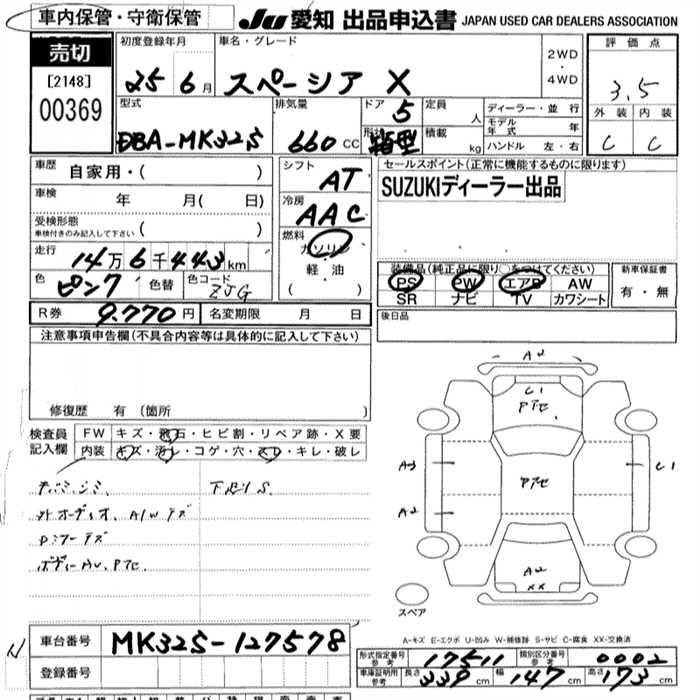 車内保管・守衛保管
JU 愛知 出品申込書 JAPAN USED CAR DEALERS ASSOCIATION
売切
[2148]
00369
初度登録年月
25 6月
車名・グレード
スペーシア X
2WD
・
4WD
評価点
3.5
外装 内装
C C
型式
DBA-MK32S
排気量
660 CC
ドア 5
形状 箱型
定員 人
積載 kg
ディーラー・並行
モデル年式 年
ハンドル 左・右
車歴 自家用・( )
車検 年 月( 日)
受検形態
車検付きのみ記入して下さい ( )
走行 14万6千443km
色 ピンク 色替 色コード ZJG
シフト
AT
冷房
AAC
燃料
ガソリン
軽・油
( )
セールスポイント(正常に機能するものに限ります)
SUZUKIディーラー出品
装備品(純正品に限り○をつけてください)
PS PW エアB AW
SR ナビ TV カワシート
新車保証書
有・無
R券 9,770円 名変期限 月 日
後日品
注意事項申告欄(不具合内容等は具体的に記入して下さい)
修復歴 有(箇所 )
検査員記入欄
FW キズ・飛石・ヒビ割・リペア跡・X要
内装 キズ・汚レ・コゲ・穴・スレ・キレ・破レ
外オーディオ、A/Wキズ
下廻りS
A2
C1
PTC
A3
C1
PTC
A2
A2
XX
スペア
A-キズ E-エクボ U-凹み W-補修跡 S-サビ C-腐食 XX-交換済
車台番号 MK32S-127578
登録番号
形式指定番号 参考 17511 類別区分番号 参考 0002
車庫証明用 参考 長さ 339cm 幅 147cm 高さ 173cm